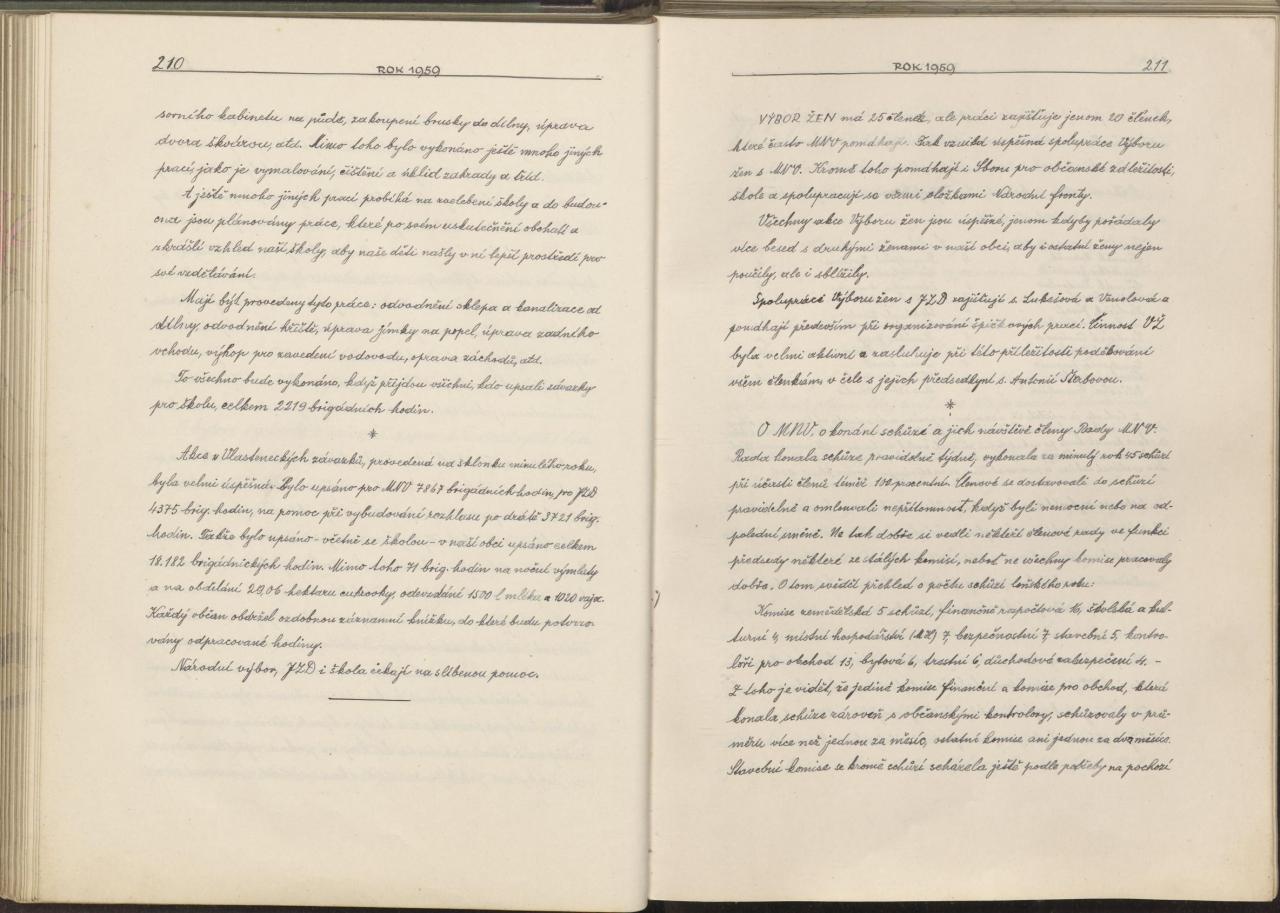 210
ROK 1959
sorního kabinetu na půdě, zakoupení brusky do dílny, úprava
dvora škvárou, atd. Mimo toho bylo vykonáno ještě mnoho jiných
prací, jako je vymalování, čištění a úklid zahrady a tříd.
A ještě mnoho jiných prací probíhá na zvelebení školy a do budou-
cna jsou plánovány práce, které po svém uskutečnění obohatí a
zkrášlí vzhled naší školy, aby naše děti našly v ní lepší prostředí pro
své vzdělávání.
Mají být provedeny tyto práce: odvodnění sklepa a kanalizace od
dílny, odvodnění hřiště, úprava jímky na popel, úprava zadního
vchodu, výkop pro zavedení vodovodu, oprava záchodů, atd.
To všechno bude vykonáno, když přijdou všichni, kdo upsali závazky
pro školu, celkem 2219 brigádních hodin.
*
Akce z Vlasteneckých závazků, provedená na sklonku minulého roku,
byla velmi úspěšná. Bylo upsáno pro MNV 7867 brigádních hodin, pro JZD
4375 brig. hodin, na pomoc při vybudování rozhlasu po drátě 3721 brig.
hodin. Takže bylo upsáno - včetně se školou - v naší obci upsáno celkem
18.182 brigádnických hodin. Mimo toho 71 brig. hodin na noční výmlaty
a na obdělání 20,06 hektaru cukrovky, odevzdání 1500 l mléka a 1020 vajec.
Každý občan obdržel ozdobnou záznamní knížku, do které budu potvrzo-
vány odpracované hodiny.
Národní výbor, JZD i škola čekají na slíbenou pomoc.
ROK 1959
211
VÝBOR ŽEN má 25 členek, ale práci zajišťuje jenom 20 členek,
které často MNV pomáhají. Tak vznikla úspěšná spolupráce Výboru
žen s MNV. Kromě toho pomáhají i Sboru pro občanské záležitosti,
škole a spolupracují se všemi složkami Národní fronty.
Všechny akce Výboru žen jsou úspěšné, jenom kdyby pořádaly
více besed s druhými ženami v naší obci, aby i ostatní ženy nejen
poučily, ale i sblížily.
Spolupráci Výboru žen s JZD zajišťují s. Lukešová a a
pomáhají především při organizování špičkových prací. Činnost VŽ
byla velmi aktivní a zasluhuje při této příležitosti poděkování
všem členkám, v čele s jejich předsedkyní s. Antonií Šterbovou.
*
O MNV, o konání schůzí a jich návštěvě členy Rady MNV.
Rada konala schůze pravidelně týdně, vykonala za minulý rok 45 schůzí
při účasti členů téměř 100 procentní. Členové se dostavovali do schůzí
pravidelně a omlouvali nepřítomnost, když byli nemocni nebo na od-
polední směně. Ne tak dobře si vedli někteří členové rady ve funkci
předsedy některé ze stálých komisí, neboť ne všechny komise pracovaly
dobře. O tom svědčí přehled o počtu schůzí loňského roku:
Komise zemědělská 5 schůzí, finančně rozpočtová 16, školská a kul-
turní 4, místní hospodářství 7, bezpečnostní 7, stavební 5, kontro-
loři pro obchod 13, bytová 6, trestní 6, důchodové zabezpečení 4. -
Z toho je vidět, že jedině komise finanční a komise pro obchod, která
konala schůze zároveň s občanskými kontrolory, schůzovaly v prů-
měru více než jednou za měsíc, ostatní komise ani jednou za dva měsíce.
Stavební komise se kromě schůzí scházela ještě podle potřeby na pochozí